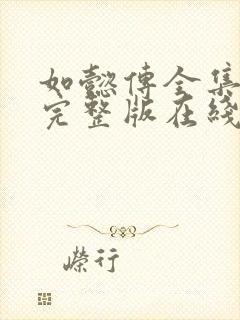 如懿傅全集
完整版在綫
嶸行